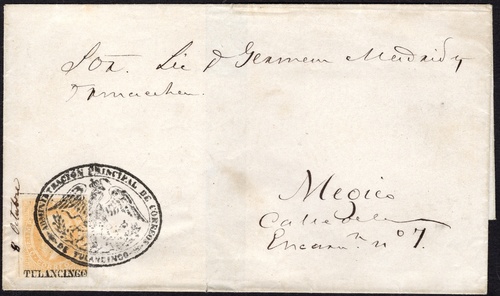 Sor. Lic. D German Madrid y
Ormaechea.
Megico
Calle de la
Encarn.n n.o 7.
8 Octubre
ADMINISTRACION PRINCIPAL DE CORREOS
DE TULANCINGO
TULANCINGO